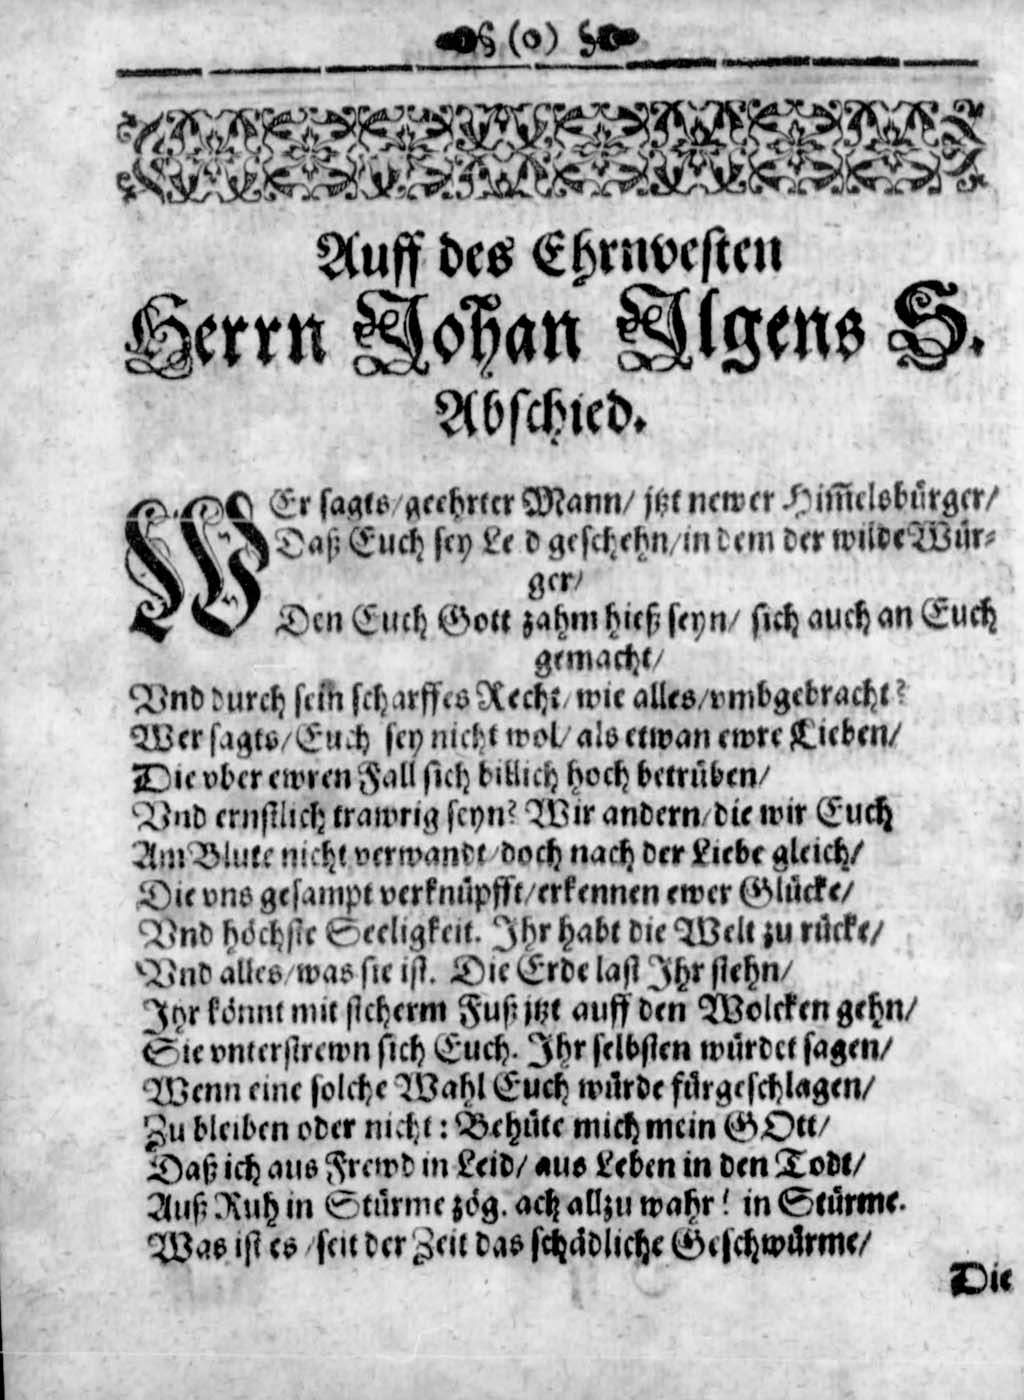 (o)
Auff des Ehrnvesten
Herrn Johan Ilgens S.
Abschied.
WEr sagts/geehrter Mann/ jtzt newer Him̃elsbürger/
Daß Euch sey Leid geschehn/in dem der wilde Wür-
ger/
Den Euch Gott zahm hieß seyn/ sich auch an Euch
gemacht/
Vnd durch sein scharffes Recht/wie alles/vmbgebracht?
Wer sagts/Euch sey nicht wol/als etwan ewre Lieben/
Die vber ewren Fall sich billich hoch betrüben/
Vnd ernstlich trawrig seyn? Wir andern/die wir Euch
Am Blute nicht verwandt/doch nach der Liebe gleich/
Die vns gesampt verknüpfft/erkennen ewer Glücke/
Vnd höchste Seeligkeit. Ihr habt die Welt zu rücke/
Vnd alles/was sie ist. Die Erde last Ihr stehn/
Ihr könnt mit sicherm Fuß jtzt auff den Wolcken gehn/
Sie vnterstrewn sich Euch. Ihr selbsten würdet sagen/
Wenn eine solche Wahl Euch würde fürgeschlagen/
Zu bleiben oder nicht: Behüte mich mein GOtt/
Daß ich aus Frewd in Leid/ aus Leben in den Todt/
Auß Ruh in Stürme zög. ach allzu wahr! in Stürme.
Was ist es/seit der Zeit das schädliche Geschwürme/
Die